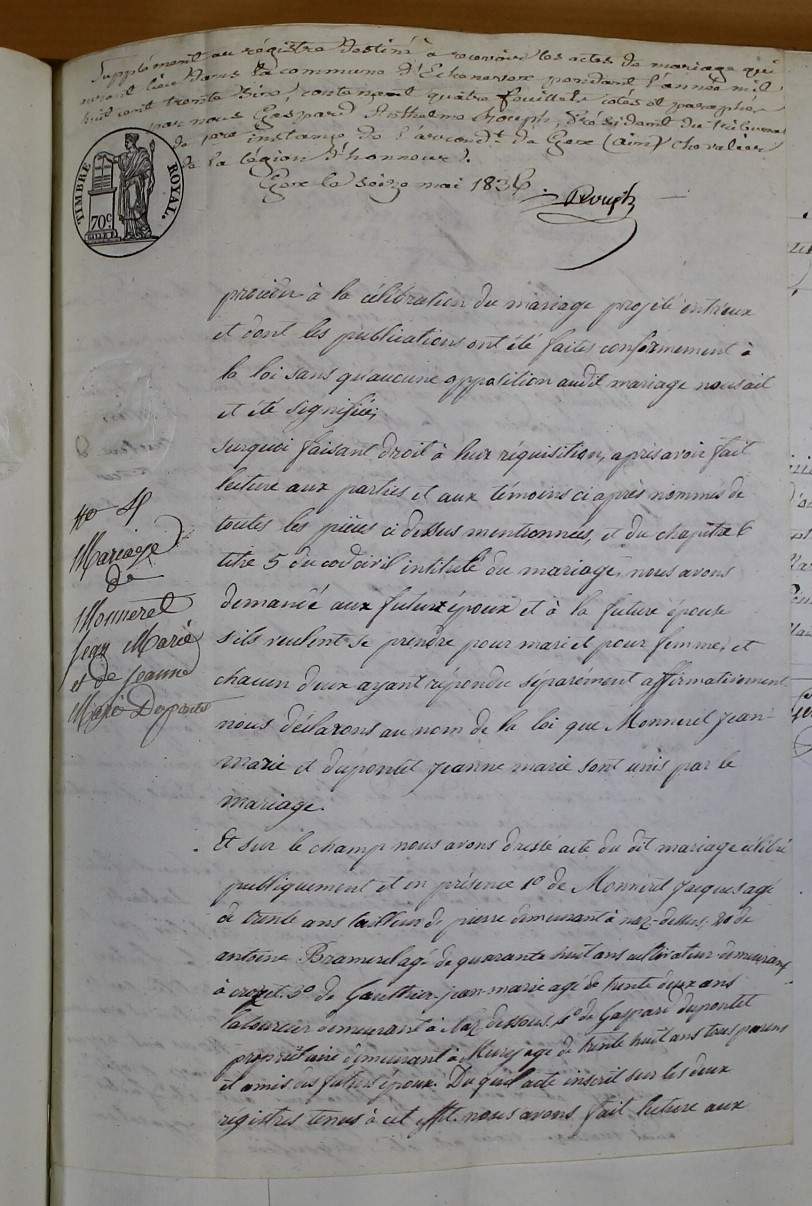 Supplément au régistre destiné à recevoir les actes de mariage qui
auront lieu dans la commune d'Echenevex pendant l'année mil
huit cent trente six, contenant quatre feuillets cotés et paraphés
par nous Gaspard Anthelme Rouph, Président du tribunal
de 1ere instance de l'arrond.t de Gex (ain) chevalier
de la légion d'honneur.
Gex le seize mai 1836.
Rouph
TIMBRE ROYAL.
70c
procéder à la célébration du mariage projété entr'eux
et dont les publications ont été faites conformement à
la loi sans qu'aucune opposition audit mariage nous ait
et été signifiée;
Surquoi faisant droit à leur réquisition, après avoir fait
lecture aux parties et aux témoins ci après nommés de
toutes les pièces ci dessus mentionnées, et du chapitre 6
titre 5 du cod civil intitulé du mariage, nous avons
demandé aux futur époux et à la future épouse
s'ils veulent se prendre pour mari et pour femme, et
chacun deux ayant répondu séparément affirmativement
nous déclarons au nom de la loi que Monneret Jean-
marie et dupontet Jeanne marie sont unis par le
mariage.
Et sur le champ nous avons dressé acte du dit mariage célébré
publiquement et en présence 1º de Monneret Jacques agé
de trente ans tailleur de pierre demeurant à naz-dessus 2o de
antoine agé de quarante huit ans cultivateur demeurant
à crozet. 3º de Gauthier jean-marie agé de trente deux ans
laboureur demeurant à Naz dessous, 4º de Gaspard dupontet
propriétaire demeurant à agé de trente huit ans tous parens
et amis des futurs époux. Du quel acte inscrit sur les deux
régistres tenus à cet effet nous avons fait lecture aux
No 4
Mariage
de
Monneret
Jean Marie
et de Jeanne
Marie Dupontet